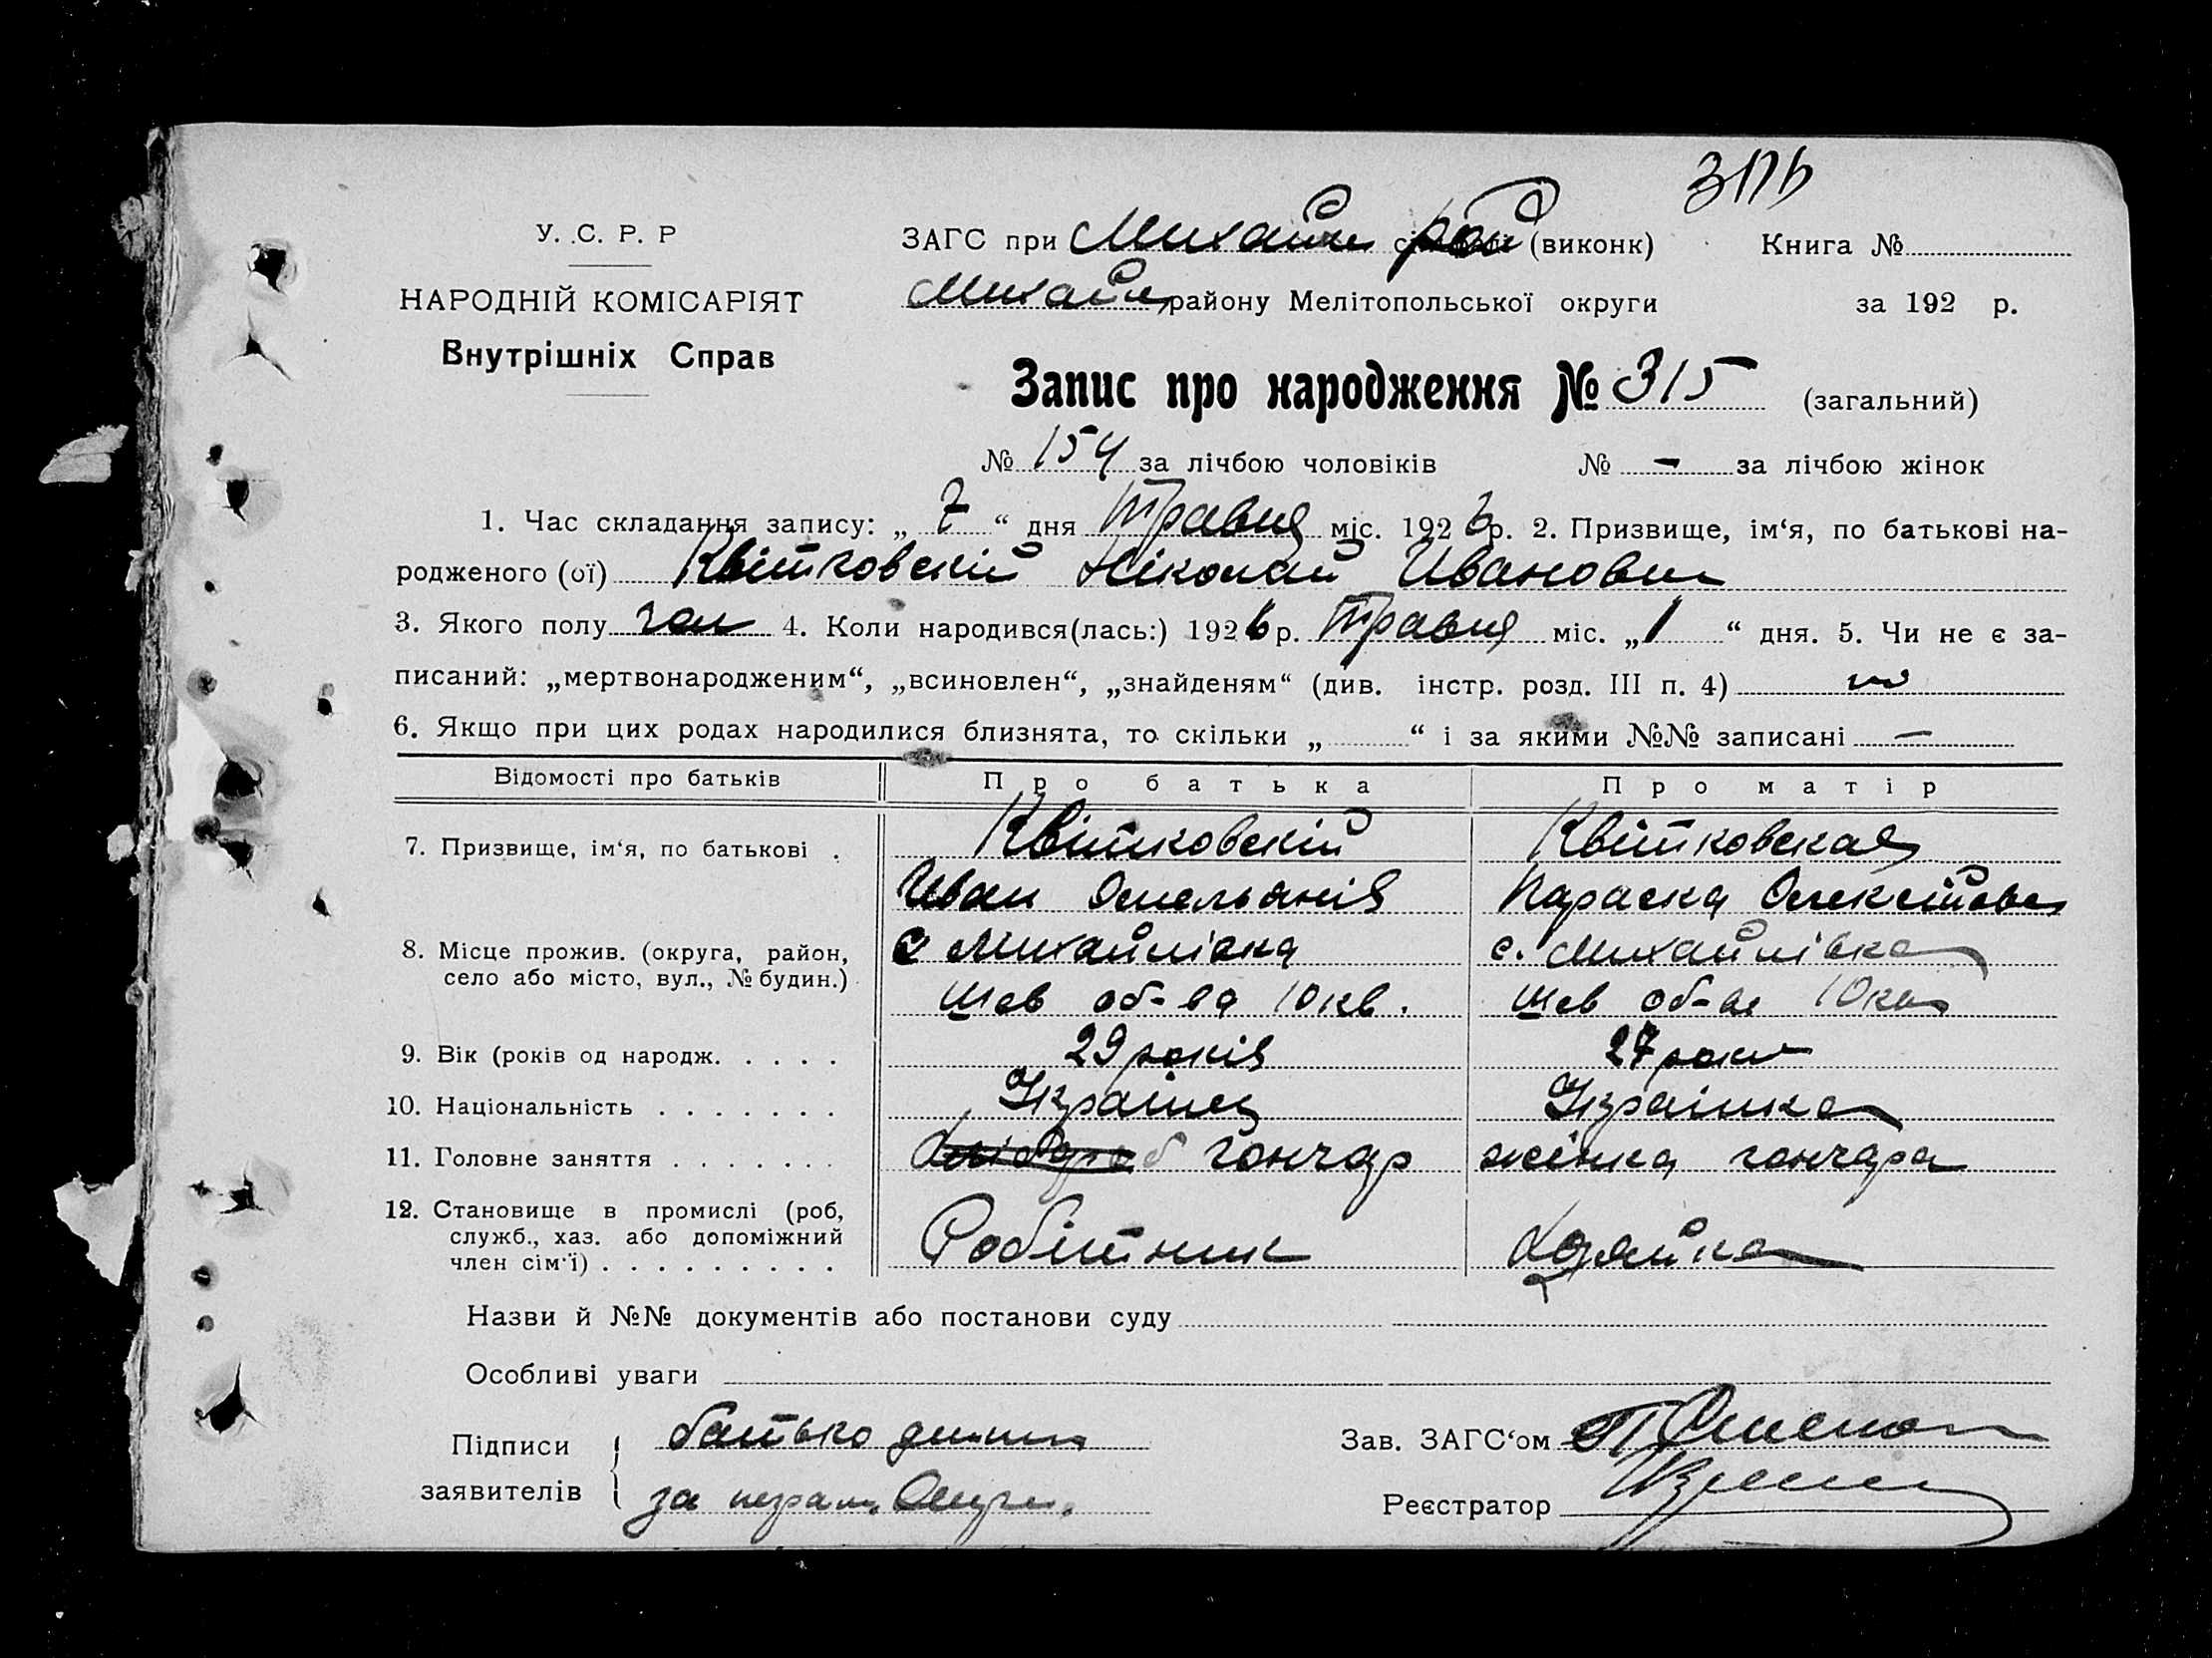 У. С. Р. Р
НАРОДНІЙ КОМІСАРІЯТ
Внутрішніх Справ
ЗАГС при Михайл рай (виконк) Книга №
Михайл району Мелітопольської округи за 192 р.
Запис про народження № 315 (загальний)
№ 154 за лічбою чоловіків № — за лічбою жінок
1. Час складання запису: „ 7 “ дня Травня міс. 1926 р. 2. Призвище, ім‘я, по батькові на-
родженого (ої) Квітковскій Ніколай Иванович
3. Якого полу чол 4. Коли народився(лась:) 1926 р. Травня міс. „ 1 “ дня. 5. Чи не є за-
писаний: „мертвонародженим“, „всиновлен“, „знайденям“ (див. інстр. розд. III п. 4)
6. Якщо при цих родах народилися близнята, то скільки „ “ і за якими №№ записані —
Відомості про батьків Про батька Про матір
7. Призвище, ім‘я, по батькові . Квітковскій Квітковская
Иван Омельянів Параска Олексіївна
8. Місце прожив. (округа, район, с Михайлівка с. Михайлівка
село або місто, вул., № будин.) Шев об-ва 10 кв. Шев об-ва 10 кв
9. Вік (років од народж. . . . . 29 років 27 роки
10. Національність . . . . . . . Українец Українка
11. Головне заняття . . . . . . гончар жінка гончара
12. Становище в промислі (роб,
служб., хаз. або допоміжний Робітник Хазяйка
член сім‘ї) . . . . . . . . .
Назви й №№ документів або постанови суду
Особливі уваги
Підписи батько дитини Зав. ЗАГС‘ом
заявителів за Реєстратор